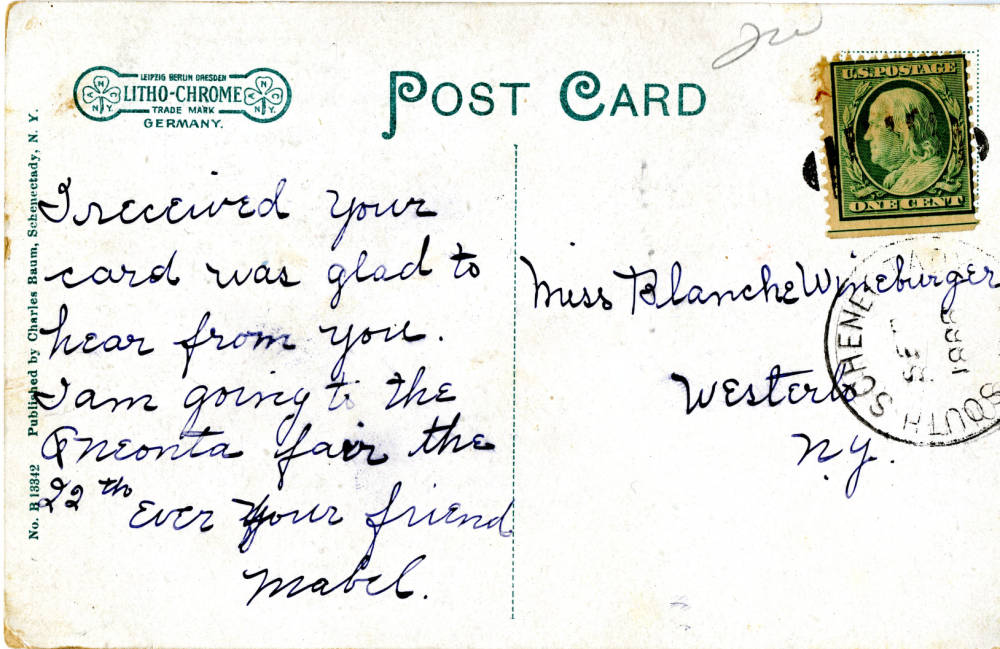 LEIPZIG BERLIN DRESDEN
LITHO-CHROME
TRADE MARK
GERMANY.
POST CARD
U.S. POSTAGE
ONE CENT
No. B 13342 Published by Charles Baum, Schenectady, N. Y.
I received your
card was glad to
hear from you.
I am going to the
Oneonta fair the
22th Ever your friend
Mabel.
Miss Blanche Wineburger
Westerlo
N.Y.
SOUTH SCHENECTA
SE